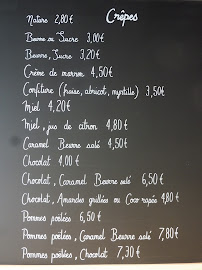 Crêpes
Nature 2,80€
Beurre ou Sucre 3,00€
Beurre, Sucre 3,20€
Crème de marron 4,50€
Confiture (fraise, abricot, myrtille) 3,50€
Miel 4,20€
Miel, jus de citron 4,80€
Caramel Beurre salé 4,50€
Chocolat 4,00€
Chocolat, Caramel Beurre salé 6,50€
Chocolat, Amandes grillées ou Coco rapée 4,80€
Pommes poêlées 6,50€
Pommes poêlées, Caramel Beurre salé 7,80€
Pommes poêlées, Chocolat 7,30€